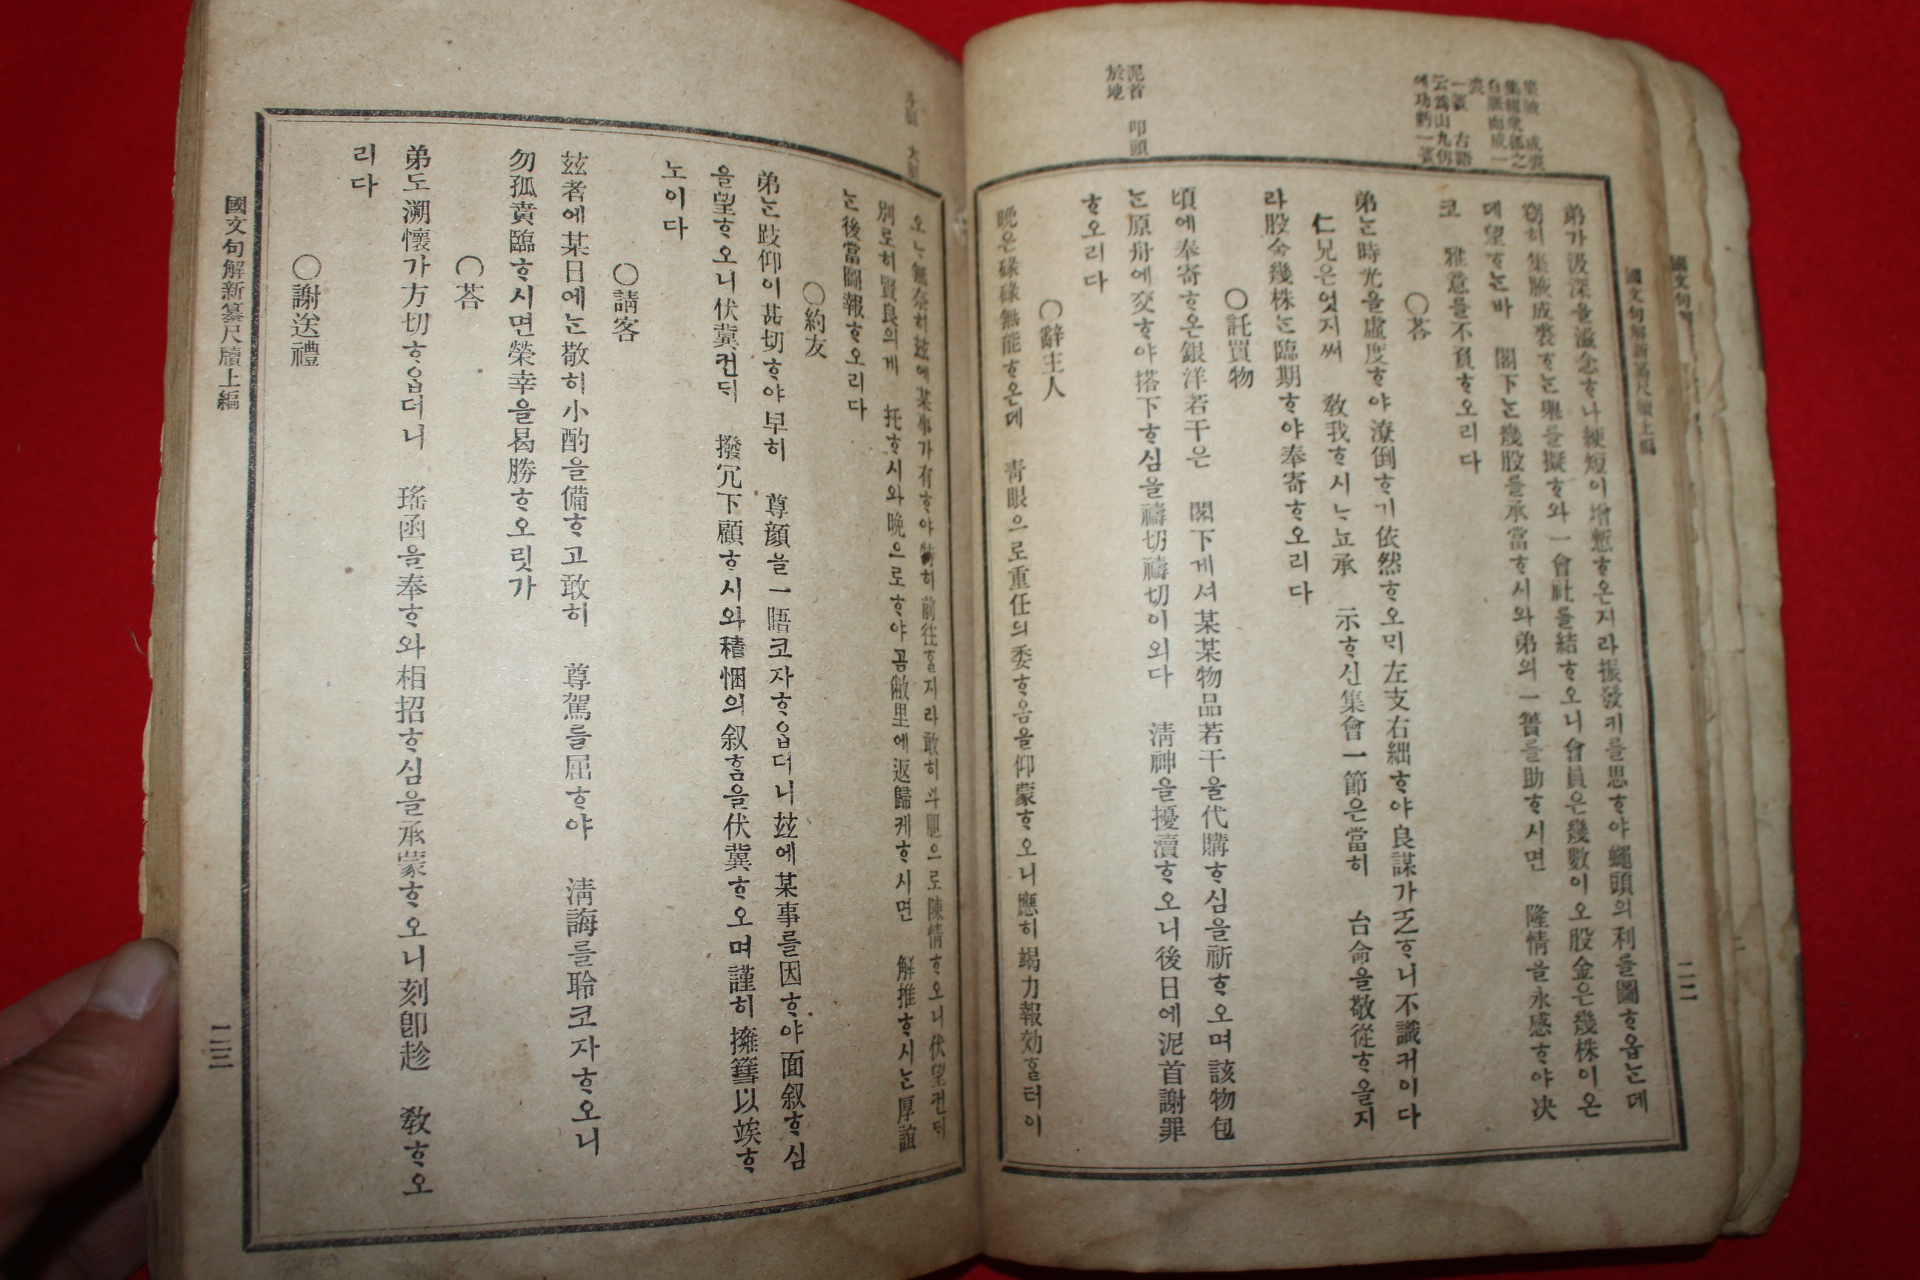 國文句解新纂尺牘上編
二二
集腋 成裘
集狐衆腋之
白腋而成一
裘
一簣 古語
云爲山九仞
에功虧一簣
泥首 叩頭
於地
弟가汲深을滋念ᄒᆞ나綆短이增慙ᄒᆞ온지라振發키를思ᄒᆞ야蠅頭의利를圖ᄒᆞ옵ᄂᆞᆫ데
竊히集腋成裘ᄒᆞᄂᆞᆫ擧를擬ᄒᆞ와一會社를結ᄒᆞ오니會員은幾數이오股金은幾株이온
데望ᄒᆞᄂᆞᆫ바 閣下ᄂᆞᆫ幾股를承當ᄒᆞ시와弟의一簣를助ᄒᆞ시면 隆情을永感ᄒᆞ야決
코 雅意를不負ᄒᆞ오리다
○荅
弟ᄂᆞᆫ時光을虛度ᄒᆞ야潦倒ᄒᆞ기依然ᄒᆞ오ᄆᆡ左支右絀ᄒᆞ야良謀가乏ᄒᆞ니不識케이다
仁兄은엇지써 敎我ᄒᆞ시ᄂᆞ뇨承 示ᄒᆞ신集會一節은當히 台命을敬從ᄒᆞ올지
라股金幾株ᄂᆞᆫ臨期ᄒᆞ야奉寄ᄒᆞ오리다
○託買物
頃에奉寄ᄒᆞ온銀洋若干은 閣下게셔某某物品若干을代購ᄒᆞ심을祈ᄒᆞ오며該物包
ᄂᆞᆫ原舟에交ᄒᆞ야搭下ᄒᆞ심을禱切禱切이외다 淸神을擾瀆ᄒᆞ오니後日에泥首謝罪
ᄒᆞ오리다
○辭主人
晩은碌碌無能ᄒᆞ온데 靑眼으로重任의委ᄒᆞ음을仰蒙ᄒᆞ오니應히竭力報効ᄒᆞᆯ터이
오ᄂᆞᆫ無奈히玆에某事가有ᄒᆞ야特히前往ᄒᆞᆯ지라敢히斗膽으로陳情ᄒᆞ오니伏望컨ᄃᆡ
別로히賢良의게 托ᄒᆞ시와晩으로ᄒᆞ야곰敝里에返歸케ᄒᆞ시면 解推ᄒᆞ시ᄂᆞᆫ厚誼
ᄂᆞᆫ後當圖報ᄒᆞ오리다
○約友
弟ᄂᆞᆫ跂仰이甚切ᄒᆞ야早히 尊顔을一晤코자ᄒᆞ옵더니玆에某事를因ᄒᆞ야面叙ᄒᆞ심
을望ᄒᆞ오니伏冀컨ᄃᆡ 撥冗下顧ᄒᆞ시와積悃의叙ᄒᆞᆷ을伏冀ᄒᆞ오며謹히擁篲以竢ᄒᆞ
노이다
○請客
玆者에某日에ᄂᆞᆫ敬히小酌을備ᄒᆞ고敢히 尊駕를屈ᄒᆞ야 淸誨를聆코자ᄒᆞ오니
勿孤賁臨ᄒᆞ시면榮幸을曷勝ᄒᆞ오릿가
○荅
弟도溯懷가方切ᄒᆞ옵더니 瑤函을奉ᄒᆞ와相招ᄒᆞ심을承蒙ᄒᆞ오니刻卽趁 敎ᄒᆞ오
리다
○謝送禮
國文句解新纂尺牘上編
二三